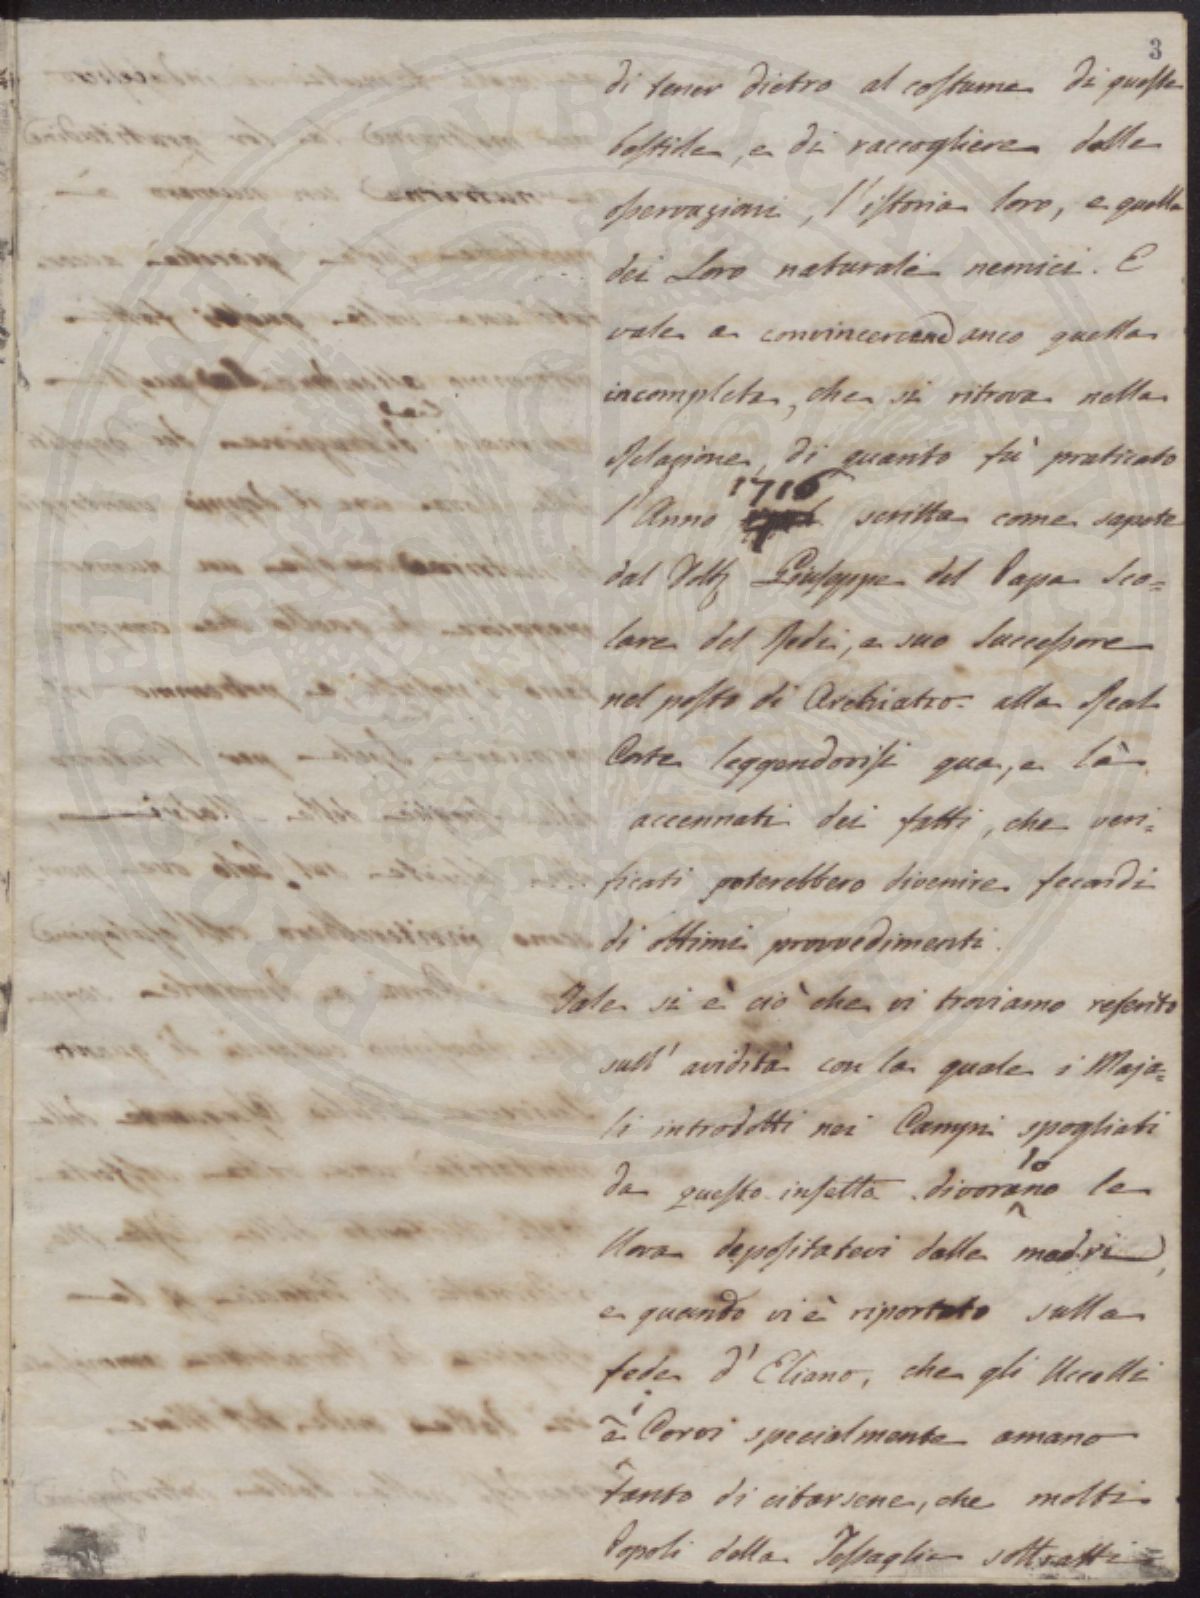 3
di tener dietro al costume di queste
bestiole, e di raccogliere dalle
osservazioni, l'istoria loro, e quella
dei Loro naturali nemici. E
vale a convincercene anco quella
incompleta, che si ritrova nella
Relazione, di quanto fù praticato
l'Anno 1716 scritta come sapete
dal Dott. Giuseppe del Papa Sco=
lare del Redi, e suo Successore
nel posto di Archiatro alla Real
Corte leggendovisi qua, e là
accennati dei fatti, che veri=
ficati poterebbero divenire fecondi
di ottimi provvedimenti.
Tale si è ciò che vi troviamo referito
sull'avidità con la quale i Maja=
li introdotti nei Campi spogliati
da questo insetto divorano le
Uova depositatevi dalle madri,
e quando vi è riportato sulla
fede d'Eliano, che gli Uccelli
e i Corvi specialmente amano
tanto di cibarsene, che molti
Popoli della Tessaglia sottratti